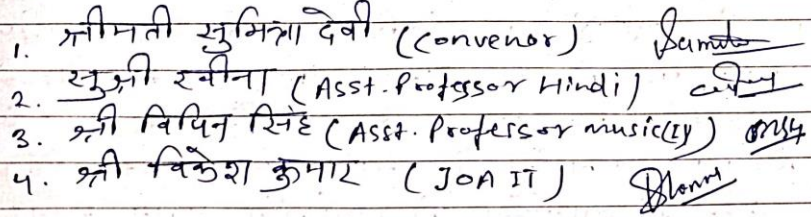 1. श्रीमती सुमित्रा देवी (Convenor)
2. सुश्री रवीना (Asst. Professor Hindi)
3. श्री विपिन सिंह (Asst. Professor music(I))
4. श्री विकेश कुमार (JOA IT)